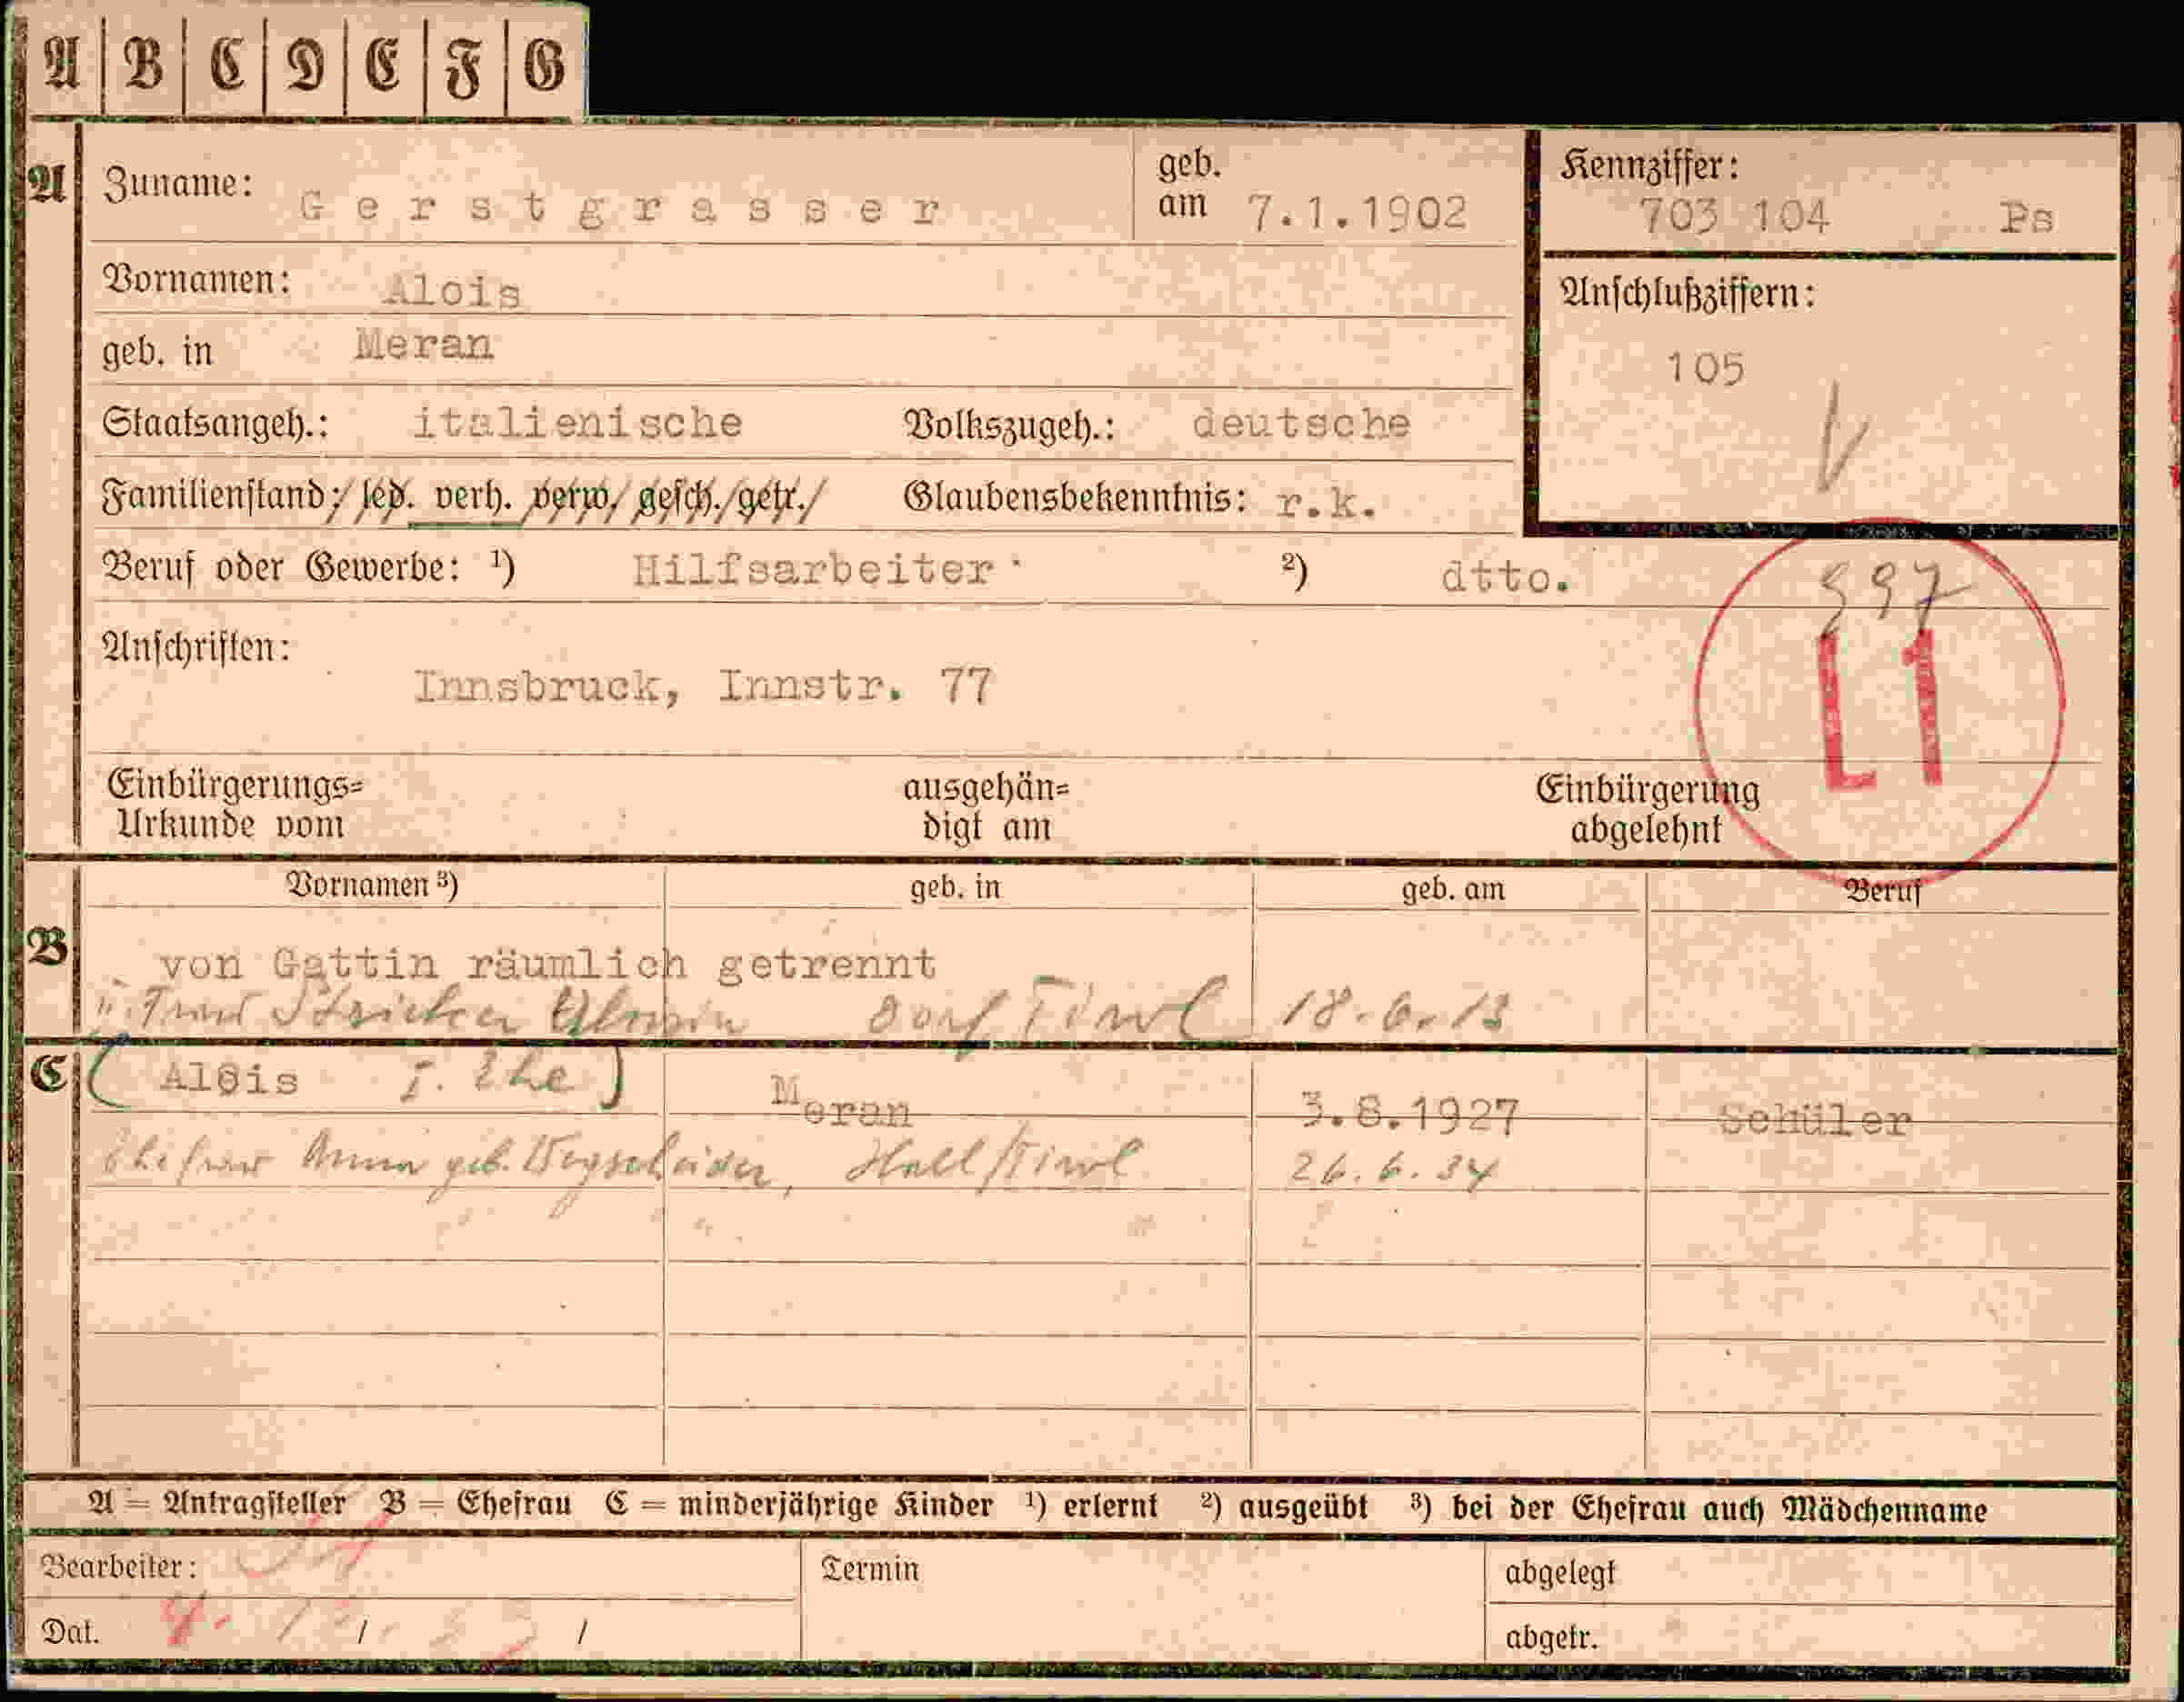 A B C D E F G
A Zuname: Gerstgrasser geb. am 7.1.1902 Kennziffer: 703 104 Ps
Vornamen: Alois Anschlußziffern:
geb. in Meran 105
Staatsangeh.: italienische Volkszugeh.: deutsche
Familienstand: led. verh. verw. gesch. getr. Glaubensbekenntnis: r.k.
Beruf oder Gewerbe: ¹) Hilfsarbeiter ²) dtto. 597
Anschriften: L1
Innsbruck, Innstr. 77
Einbürgerungs= ausgehän= Einbürgerung
Urkunde vom digt am abgelehnt
Vornamen ³) geb. in geb. am Beruf
B von Gattin räumlich getrennt
Stricker Dorf Tirol 18.6.13
C (Alois I. Ehe) Meran 3.8.1927 Schüler
Ehefrau Anna geb. Wegscheider, Hall/Tirol 26.6.34
A = Antragsteller B = Ehefrau C = minderjährige Kinder ¹) erlernt ²) ausgeübt ³) bei der Ehefrau auch Mädchenname
Bearbeiter: Termin abgelegt
Dat. / / abgetr.